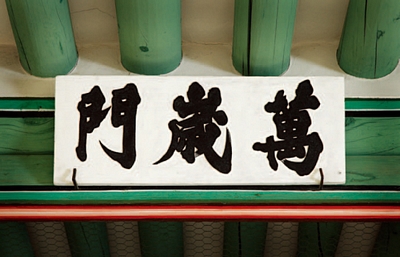 萬歲門